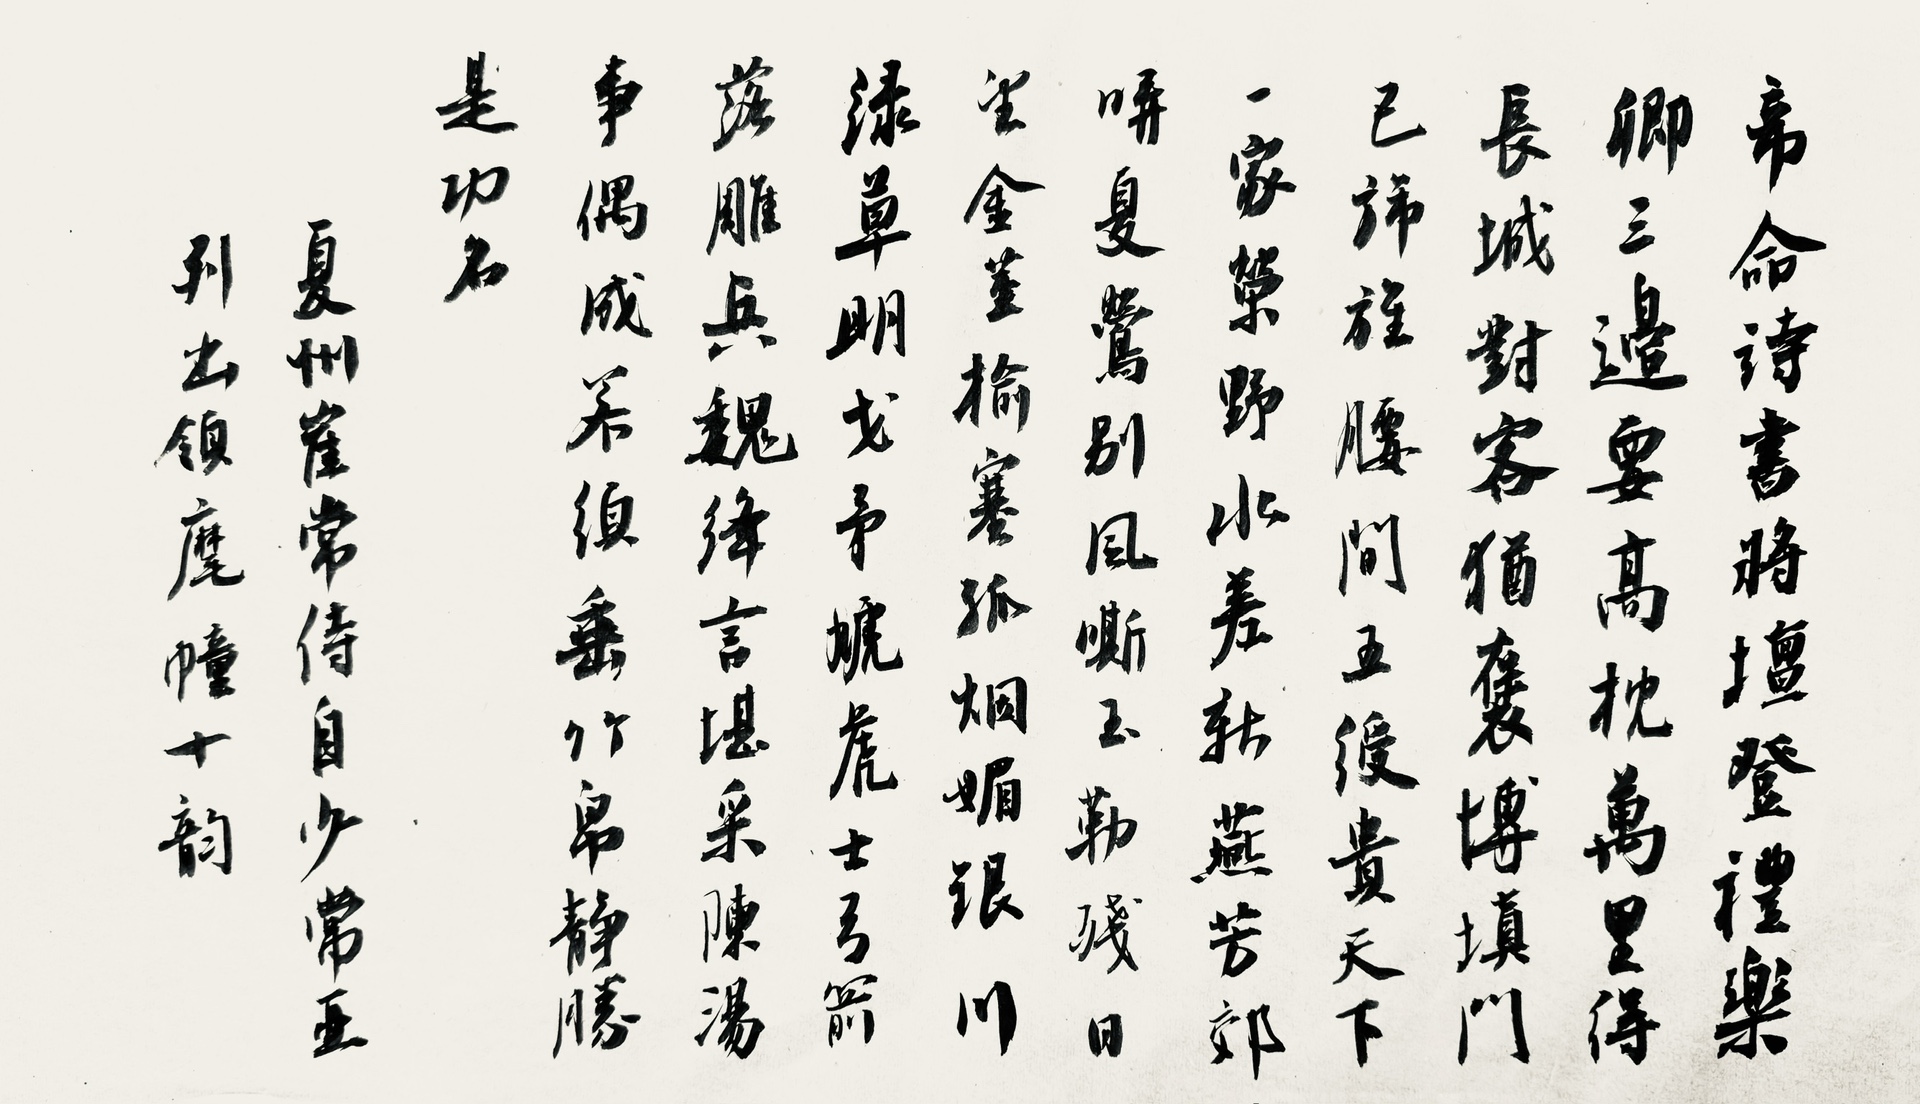 帝命詩書將壇登禮樂
卿三邊要高枕萬里得
長城對客猶褒博填門
已旆旌腰間五綬貴天下
一家榮野水差新燕芳郊
哢夏鶯別風嘶玉勒殘日
望金莖榆塞孤烟媚銀川
緑草明戈矛虓虎士弓箭
落雕兵魏絳言堪采陳湯
事偶成若須垂竹帛靜勝
是功名
夏州崔常侍自少常亞
列出領麾幢十韵